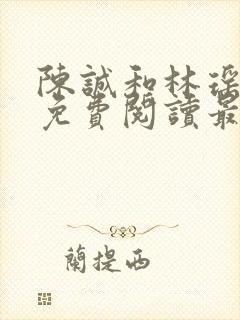 陳誠和林瑤
免費閱讀最
蘭提西